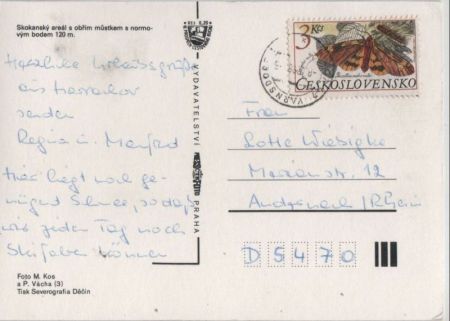 Skokanský areál s obřím můstkem s normo-
vým bodem 120 m.
Herzliche Urlaubsgrüße
aus Harrachov
senden
Regina u. Manfred
Hier liegt noch ge-
nügend Schnee, so daß
wir jeden Tag noch
Skifahren können
Foto M. Kos
a P. Vácha (3)
Tisk Severografia Děčín
VYDAVATELSTVÍ
PRAHA
3 Kčs
ČESKOSLOVENSKO
Frau
Lotte
Marienstr. 12
Andernach/Rhein
D 5470